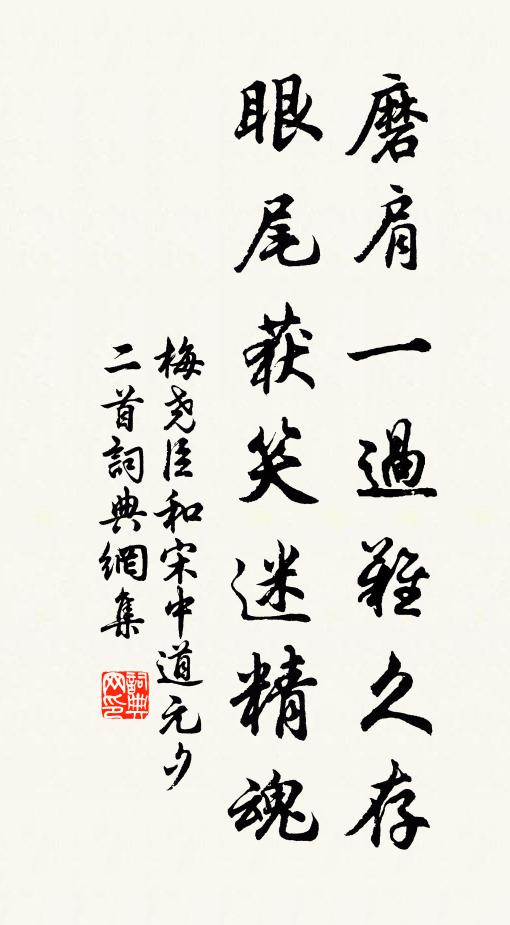 磨肩一過難久存
眼尾获笑迷精魂
梅尧臣和宋中道元夕
二首詞典網集
詞典
网印